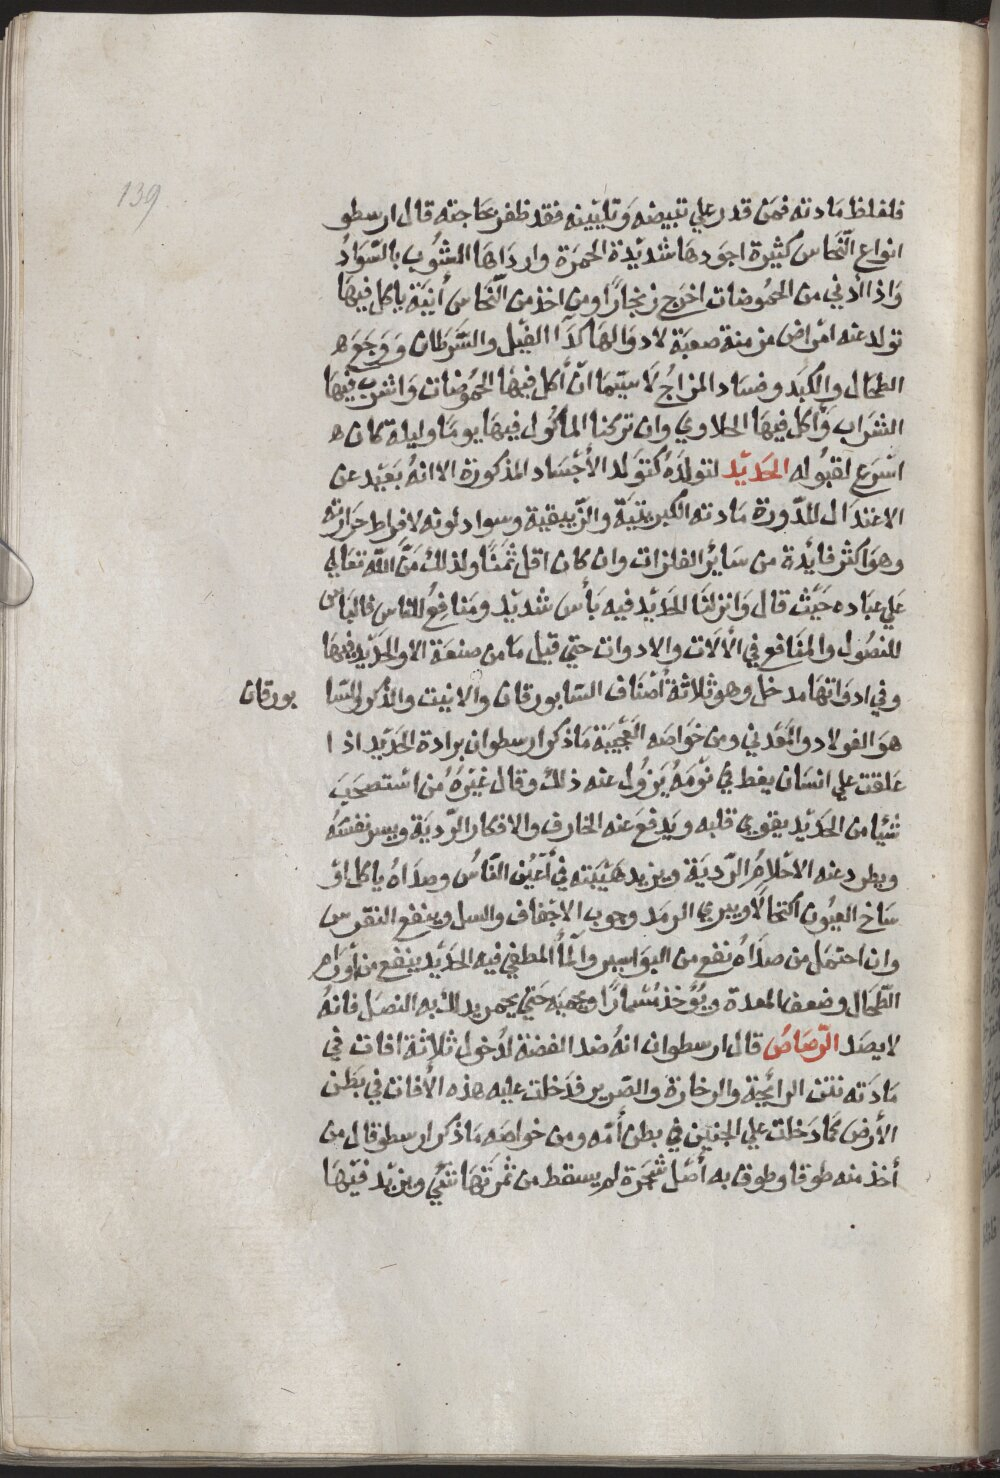 139
فلغلظ مادته فمن قدر علي تبيضه وتليينه فقد ظفر بحاجته قال ارسطو
انواع النحاس كثيرة اجودها شديدة الحمرة وارداها المشوب بالسواد
واذا ادني من الحموضات اخرج زنجارًا ومن اخذ من النحاس أنية ياكل فيها
تولد عنه امراض مزمنة صعبة لا دوا لها كدآ الفيل والسرطان ووجع
الطحال والكبد وفساد المزاج لا سيما ان أكل فيها الحموضات واشرب فيها
الشراب وأكل فيها الحلاوي وان تركنا المأكول فيها يوما وليلة كان
اسرع لقبوله الحديد لتولده كتولد الأجساد المذكورة الا انه بعيد عن
الاعتدال لكدورة مادته الكبريتية والزيبقية وسواد لونه لافراط حرارته
وهو اكثر فايدة من سائر الفلزات وان كان اقل ثمنًا ولذلك منّ الله تعالي
علي عباده حيث قال وانزلنا الحديد فيه بأس شديد ومنافع للناس فالباس
للنصول والمنافع في الألات والادوات حتي قيل ما من صنعة الا والحديد فيها
وفي ادواتها مدخل وهو ثلاثة أصناف السابورقان والانيث والذكر والسا
بورقان
هو الفولاد والمعدني ومن خواصه العجيبة ماذكر ارسطو ان برادة الحديد اذا
علقت علي انسان يغط في نومه يزول عنه ذلك وقال غيره من استصحب
شيا من الحديد يقوي قلبه ويدفع عنه المخارف والافكار الردية ويسر نفسه
ويطرد عنه الاحلام الردية ويزيد هيبته في أعين الناس وصداه ياكل او
ساخ العيون اكتحالًا ويبري الرمد وجرب الاجفاف والسبل وينفع النقرس
وان احتمل من صداه نفع من البواسير والمأ المطفي فيه الحديد ينفع من اورام
الطحال وضعف المعدة ويؤخذ مسمارًا ويحميه حتي يحمر يدلك به النصل فانه
لا يصدا الرصاص قال ارسطو ان انه ضد الفضة لدخول ثلاثة افات في
مادته نتن الرائحة والرخاوة والصرير فدخلت عليه هذه الأفات في بطن
الأرض كما دخلت علي الجنين في بطن أمه ومن خواصه ماذكر ارسطو قال من
أخذ منه طوقا وطوق به أصل شجرة لم يسقط من ثمرتها شي ويزيد فيها